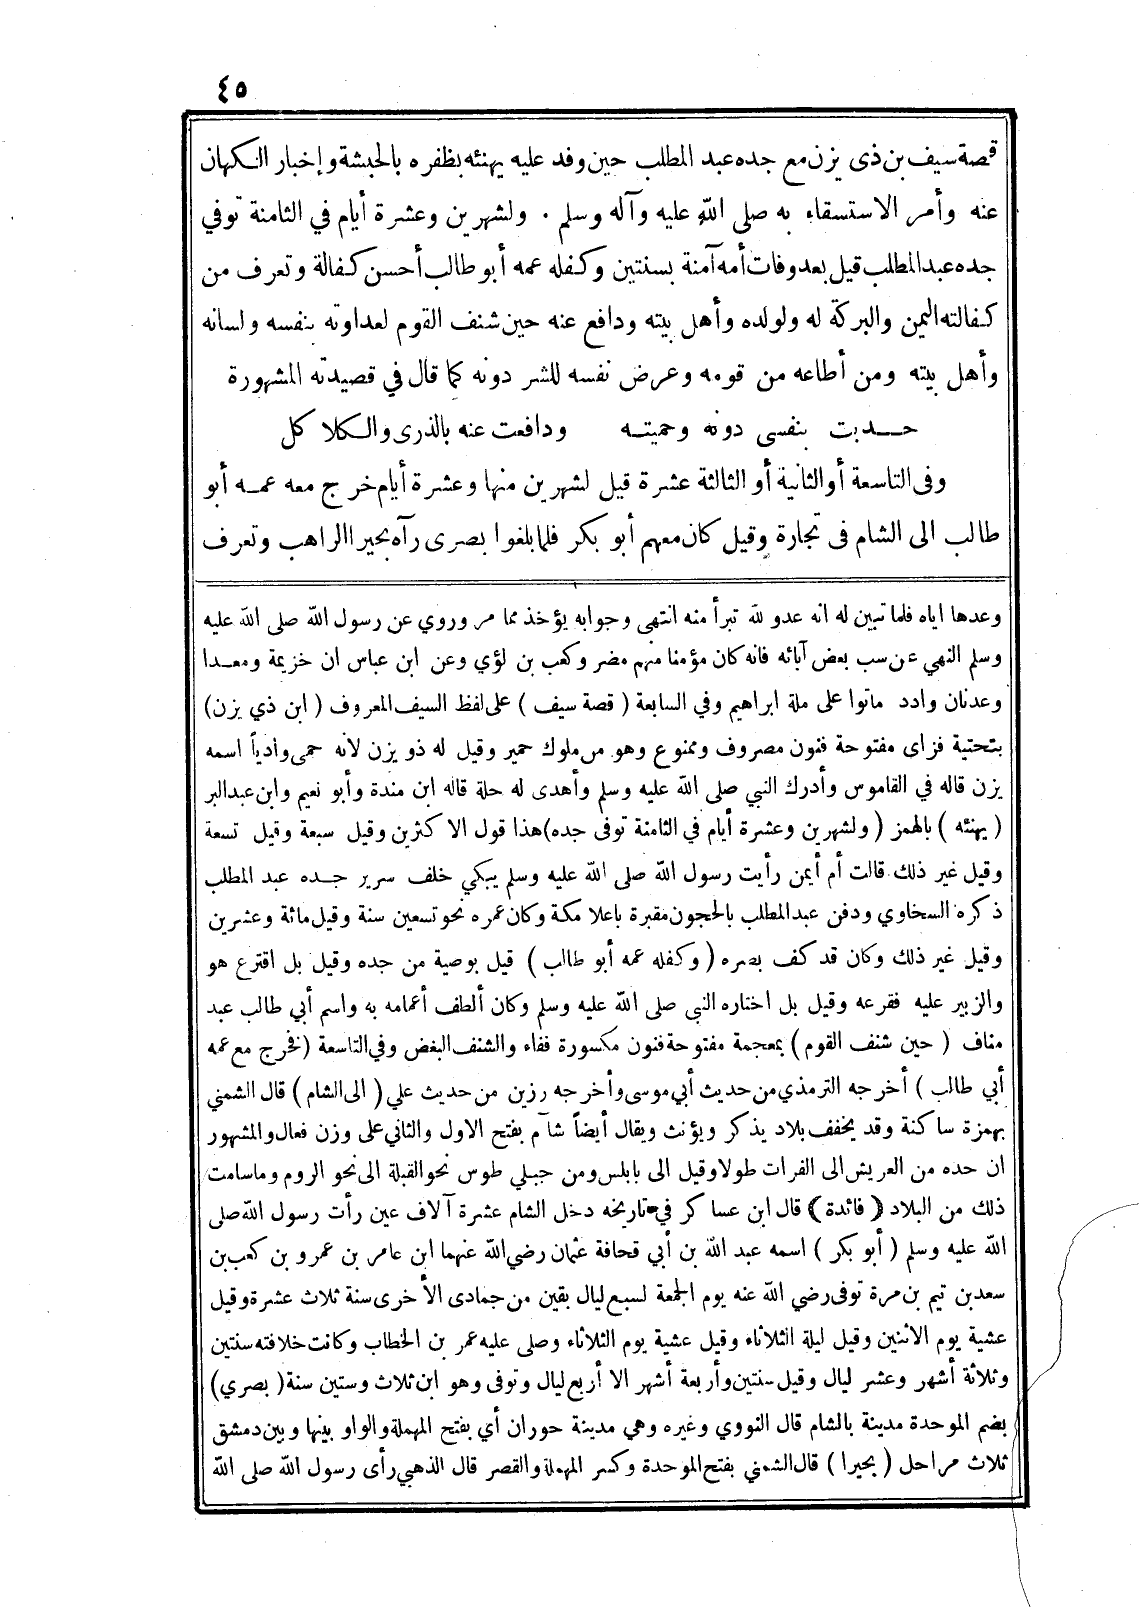 ٤٥
قصة سيف بن ذى يزن مع جده عبد المطلب حين وفد عليه يهنئه بظفره بالحبشة و إخبار الكهان
عنه وأمر الاستسقاء به صلى الله عليه وآله وسلم . ولشهرين وعشرة أيام في الثامنة توفي
جده عبد المطلب قيل بعد وفات أمه آمنة بسنتين وكفله عمه أبو طالب أحسن كفالة وتعرف من
كفالته اليمن والبركة له ولولده وأهل بيته ودافع عنه حين شنف القوم لعداوته بنفسه ولسانه
وأهل بيته ومن أطاعه من قومه وعرض نفسه للشر دونه كما قال في قصيدته المشهورة
حدبت بنفسى دونه وحميته ودافعت عنه بالذرى والكلا كل
وفى التاسعة أو الثانية أو الثالثة عشرة قيل لشهرين منها وعشرة أيام خرج معه عمه أبو
طالب الى الشام فى تجارة وقيل كان معهم أبو بكر فلما بلغوا بصرى رآه بحيرا الراهب وتعرف
وعدها اياه فلما تبين له انه عدو لله تبرأ منه انتهى وجوابه يؤخذ مما مر وروي عن رسول الله صلى الله عليه
وسلم النهي عن سب بعض آبائه فانه كان مؤمنا منهم مضر وكعب بن لؤي وعن ابن عباس ان خزيمة ومعدا
وعدنان وادد ماتوا على ملة ابراهيم وفي السابعة ( قصة سيف ) على لفظ السيف المعروف ( ابن ذي يزن)
بتحتية فزاى مفتوحة فنون مصروف وممنوع وهو من ملوك حمير وقيل له ذو يزن لانه حمى وادياً اسمه
يزن قاله في القاموس وأدرك النبي صلى الله عليه وسلم وأهدى له حلة قاله ابن مندة وأبو نعيم وابن عبدالبر
( يهنئه ) بالهمز ( ولشهرين وعشرة أيام في الثامنة توفى جده) هذا قول الاكثرين وقيل سبعة وقيل تسعة
وقيل غير ذلك قالت أم أيمن رأيت رسول الله صلى الله عليه وسلم يبكي خلف سرير جده عبد المطلب
ذكره السخاوي ودفن عبد المطلب بالحجون مقبرة باعلا مكة وكان عمره نحو تسعين سنة وقيل مائة وعشرين
وقيل غير ذلك وكان قد كف بصره ( وكفله عمه أبو طالب ) قيل بوصية من جده وقيل بل اقترع هو
والزبير عليه فقرعه وقيل بل اختاره النبي صلى الله عليه وسلم وكان ألطف أعمامه به واسم أبي طالب عبد
مناف ( حين شنف القوم ) بمعجمة مفتوحة فنون مكسورة ففاء والشنف البغض وفي التاسعة (فخرج مع عمه
أبي طالب ) أخرجه الترمذي من حديث أبي موسى وأخرجه رزين من حديث علي ( الى الشام ) قال الشمني
بهمزة ساكنة وقد يخفف بلاد يذكر ويؤنث ويقال أيضاً شآم بفتح الاول والثاني على وزن فعال والمشهور
ان حده من العريش الى الفرات طولا وقيل الى بابلس ومن جبلي طوس نحو القبلة الى نحو الروم وما سامت
ذلك من البلاد ( فائدة ) قال ابن عساكر في تاريخه دخل الشام عشرة آلاف عين رأت رسول الله صلى
الله عليه وسلم ( أبو بكر ) اسمه عبد الله بن أبي قحافة عثمان رضي الله عنهما ابن عامر بن عمرو بن كعب بن
سعد بن تيم بن مرة توفى رضي الله عنه يوم الجمعة لسبع ليال بقين من جمادى الأخرى سنة ثلاث عشرة وقيل
عشية يوم الاثنين وقيل ليلة الثلاثاء وقيل عشية يوم الثلاثاء وصلى عليه عمر بن الخطاب وكانت خلافته سنتين
وثلاثة أشهر وعشر ليال وقيل سنتين وأربعة أشهر الا أربع ليال وتوفى وهو ابن ثلاث وستين سنة ( بصري)
بضم الموحدة مدينة بالشام قال النووي وغيره وهي مدينة حوران أي بفتح المهملة والواو بينها وبين دمشق
ثلاث مراحل ( بحيرا ) قال الشمني بفتح الموحدة وكسر المهملة والقصر قال الذهبي رأى رسول الله صلى الله